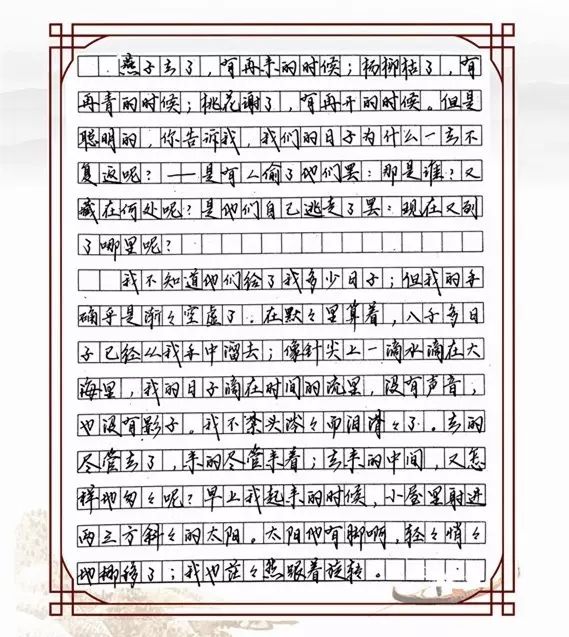 燕子去了，有再来的时候；杨柳枯了，有
再青的时候；桃花谢了，有再开的时候。但是
聪明的，你告诉我，我们的日子为什么一去不
复返呢？——是有人偷了他们罢：那是谁？又
藏在何处呢？是他们自己逃走了罢：现在又到
了哪里呢？
我不知道他们给了我多少日子；但我的手
确乎是渐々空虚了。在默々里算着，八千多日
子已经从我手中溜去；像针尖上一滴水滴在大
海里，我的日子滴在时间的流里，没有声音，
也没有影子。我不禁头涔々而泪潸々了。去的
尽管去了，来的尽管来着；去来的中间，又怎
样地匆々呢？早上我起来的时候，小屋里射进
两三方斜々的太阳。太阳他有脚啊，轻々悄々
地挪移了；我也茫々然跟着旋转。